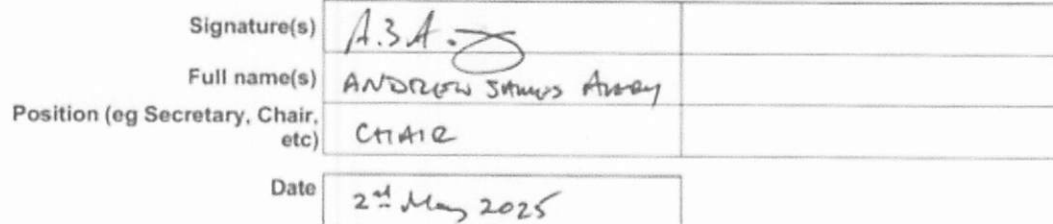 Signature(s)
Full name(s) ANDREW JAMES
Position (eg Secretary, Chair,
etc) CHAIR
Date 2nd May 2025